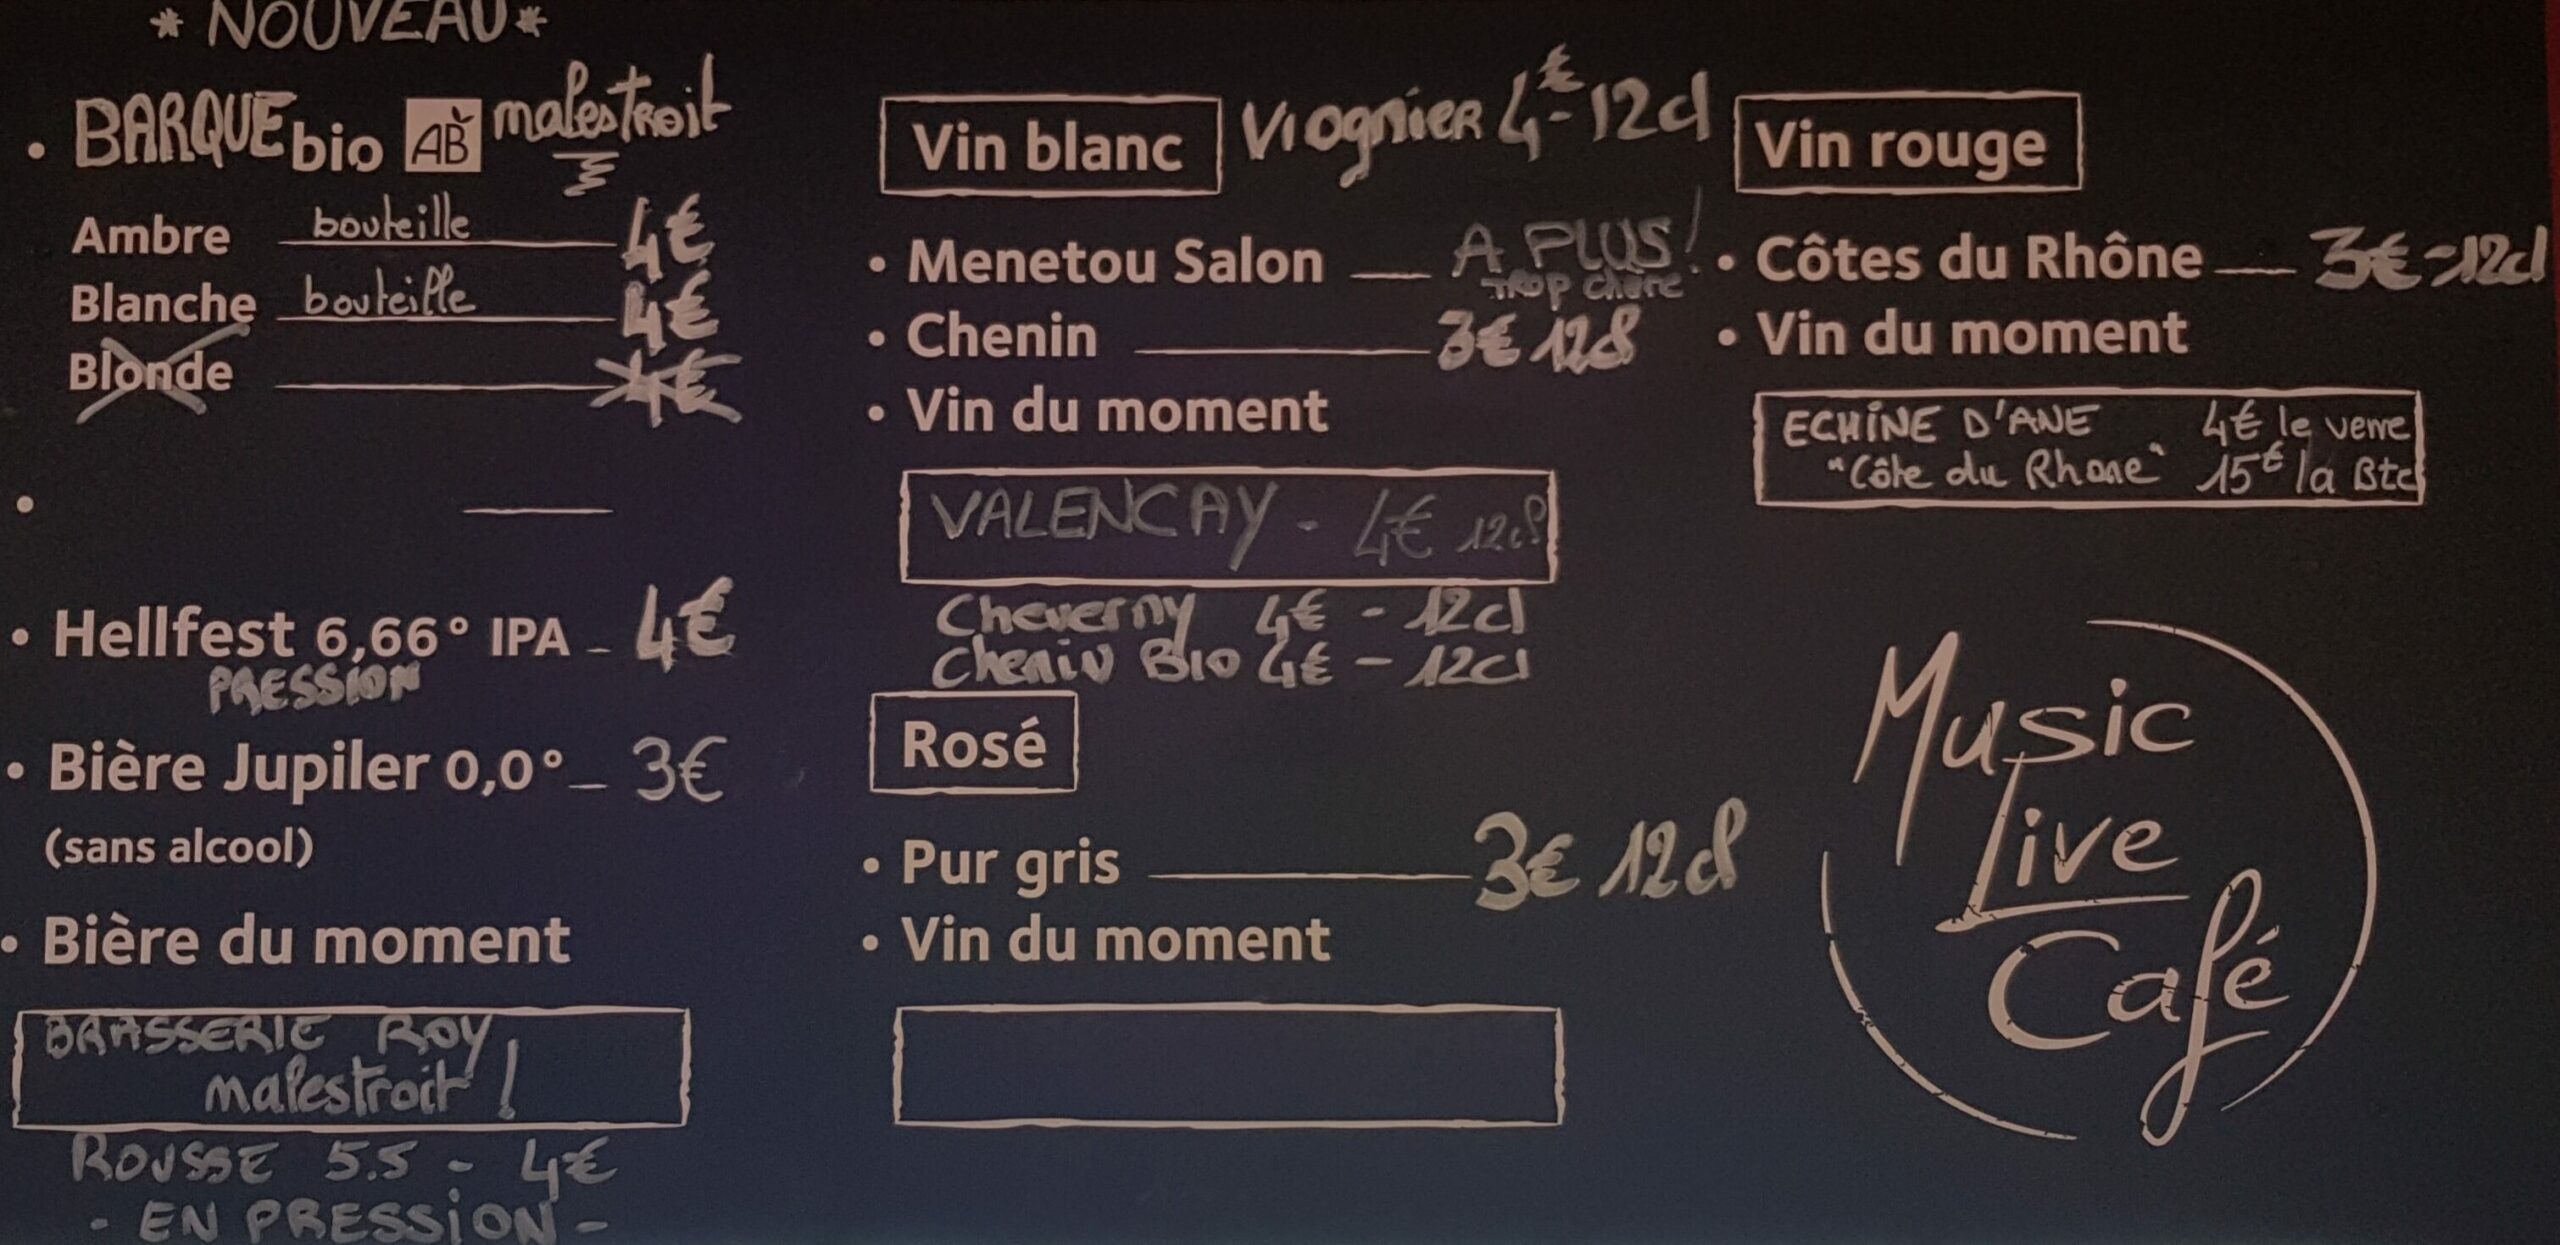 * NOUVEAU *
• BARQUE bio AB malestroit
Ambre bouteille 4€
Blanche bouteille 4€
Blonde 4€
•
• Hellfest 6,66° IPA - 4€
PRESSION
• Bière Jupiler 0,0° - 3€
(sans alcool)
• Bière du moment
BRASSERIE ROY
malestroit !
ROUSSE 5.5 - 4€
- EN PRESSION -
Vin blanc Viognier 4€ - 12cl
• Menetou Salon — A PLUS !
trop chère
• Chenin 3€ 12cl
• Vin du moment
VALENCAY - 4€ 12cl
Cheverny 4€ - 12cl
Chenin Bio 4€ - 12cl
Rosé
• Pur gris 3€ 12cl
• Vin du moment
Vin rouge
• Côtes du Rhône — 3€ - 12cl
• Vin du moment
ECHINE D'ANE 4€ le verre
"Côte du Rhone" 15€ la Bte
Music
Live
Café